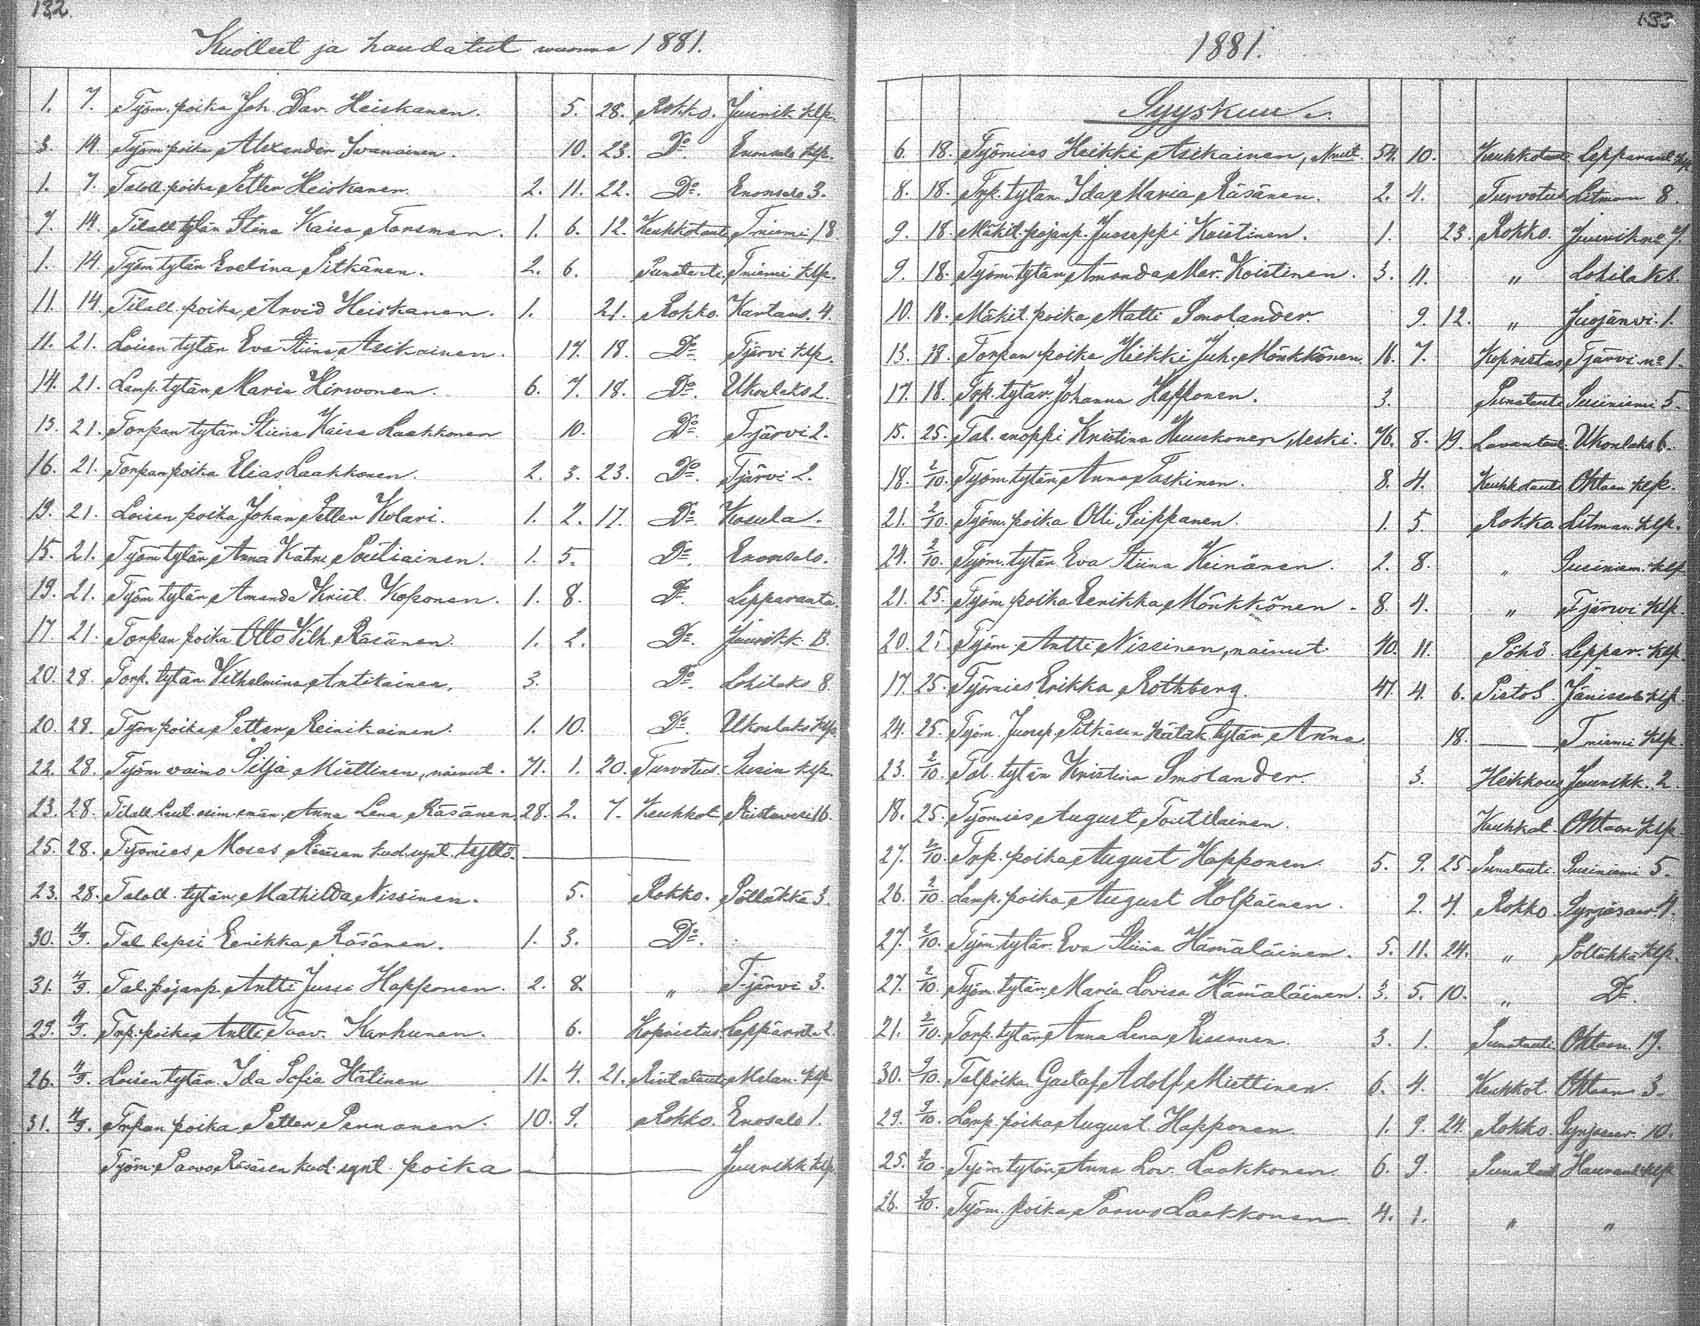 132.
Kuolleet ja haudatut wuonna 1881.
1. 7. Työm. poika Joh. Dav. Heiskanen. 5. 28. Rokko. Juurik. klp.
3. 14. Työm poika Alexander Ivanainen. 10. 23. Do. Enonsalo klp.
1. 7. Taloll. poika Petter Heiskanen. 2. 11. 22. Do. Enonsalo 3.
7. 14. Tilall. tytär Stina Kaisa Forsman. 1. 6. 12. Keuhkotauti Tniemi 18
1. 14. Työm tytär Evelina Pitkänen. 2. 6. Punataut. Tniemi klp.
11. 14. Tilall. poika Arvid Heiskanen. 1. 21. Rokko. Kartano. 4.
11. 21. Loisen tytär Eva Stiina Asikainen. 17. 18. Do. Tjärvi klp.
14. 21. Lamp. tytär Maria Hirwonen. 6. 7. 18. Do. Ukonlaks 2.
15. 21. Torpan tytär Stiina Kaisa Laakkonen 10. Do. Tjärvi 2.
16. 21. Torpan poika Elias Laakkonen. 2. 3. 23. Do. Tjärvi 2.
19. 21. Loisen poika Johan Petter Kolari. 1. 2. 17. Do. Kosula.
15. 21. Työm tytär Anna Katri Poutiainen. 1. 5. Do. Enonsalo.
19. 21. Työm tytär Amanda Krist. Koponen. 1. 8. Do. Lepparanta.
17. 21. Torpan poika Otto Vilh. Räsänen. 1. 2. Do. Juurikk 13.
20. 28. Torp. tytär Vilhelmina Antikainen. 3. Do. Lohilaks 8
20. 28. Työm poika Petter Reinikainen. 1. 10. Do. Ukonlaks klp.
22. 28. Työm vaimo Silja Miettinen, nainut. 71. 1. 20. Turvotus. Susin klp.
23. 28. Tilall. Leut. esim. emän. Anna Lena Räsänen. 28. 2. 7. Keuhkot. Ristaveri 16.
25. 28. Työmies Moses Räisäsen kuol. synt. tyttö.
23. 28. Taloll. tytär Mathilda Nissinen. 5. Rokko. Pölläkkä 3.
30. 4/9. Tal. lapsi Eerikka Räsänen. 1. 3. Do.
31. 4/9. Tal. pojanp. Antti Jussi Happonen. 2. 8. " Tjärvi 3.
29. 4/9. Trp. poika Antti Taav. Karhunen. 6. Kopristus Leppärnt. 2.
26. 4/9. Loisen tytär Ida Sofia Hätinen 11. 4. 21. Rintataut. Melan. klp.
31. 4/9. Trpan poika Petter Pennanen. 10. 9. Rokko. Enosalo 1.
Työm. Paavo Räsäsen kuol. synt. poika Juurikk klp.
133
1881.
Syyskuu.
6. 18. Työmies Heikki Asikainen, nait. 54. 10. Keuhkotaut. Lepparant. klp.
8. 18. Trp. tytär Ida Maria Räsänen. 2. 4. Turvotus Litman 8.
9. 18. Mäkit. pojanp. Juoseppi Koistinen. 1. 23. Rokko. Juurik no 7.
9. 18. Työm. tytär Amanda Mar. Koistinen. 3. 11. " Lohila k.l.
10. 18. Mäkit. poika Matti Smolander. 9. 12. " Juojärvi 1.
13. 18. Torpan poika Heikki Juh. Mönkkönen. 16. 7. Kopristus Tjärvi no 1.
17. 18. Trp. tytär Johanna Happonen. 3. Punataut. Susiniemi 5.
15. 25. Tal. anoppi Kristina Huuskonen leski. 76. 8. 19. Lavantaut. Ukonlaks 6.
18. 2/10. Työm. tytär Anna Paskinen. 8. 4. Keuhkotaut. Ohtaan klp.
21. 2/10. Työm. poika Olli Suppanen. 1. 5 Rokko Litman. klp.
24. 2/10. Työm. tytär Eva Stiina Heinänen. 2. 8. " Susiniem. klp
21. 25. Työm. poika Eerikka Mönkkönen. 8. 4. " Tjärwi klp.
20. 25. Työm. Antti Nissinen, nainut 40. 11. Pöhö Leppär. klp.
17. 25. Työmies Erikka Rothberg. 41. 4. 6. Pistos Jänissalo klp.
24. 25. Työm. Juosep Pitkäsen hätäk. tytär Anna 18. Tniemi klp.
23. 2/10. Tal. tytär Kristina Smolander. 3. Heikkous Juurikk. 2.
18. 25. Työmies August Toutilainen. Keuhkot. Ohtaan klp.
27. 2/10. Trp. poika August Happonen. 5. 9. 25 Punataut. Susiniemi 5.
26. 2/10. Lamp. poika August Holpainen. 2. 4. Rokko. Syrjäsaar 4.
27. 2/10. Työm. tytär Eva Stiina Hämäläinen. 5. 11. 24. " Pölläkkä klp.
27. 2/10. Työm. tytär Maria Lovisa Hämäläinen. 3. 5. 10. " Do.
21. 2/10. Torp. tytär Anna Lena Rissanen. 3. 1. Punataut. Ohtaan. 19.
30. 9/10. Tal poika Gustaf Adolf Miettinen. 6. 4. Keuhkot. Ohtaan 3.
29. 9/10. Lamp. poika August Happonen. 1. 9. 24. Rokko Syrjäsaar. 10.
25. 9/10. Työm. tytär Anna Lov. Laakkonen. 6. 9. Punataut. klp
26. 9/10. Työm. poika Paavo Laakkonen 4. 1. " "